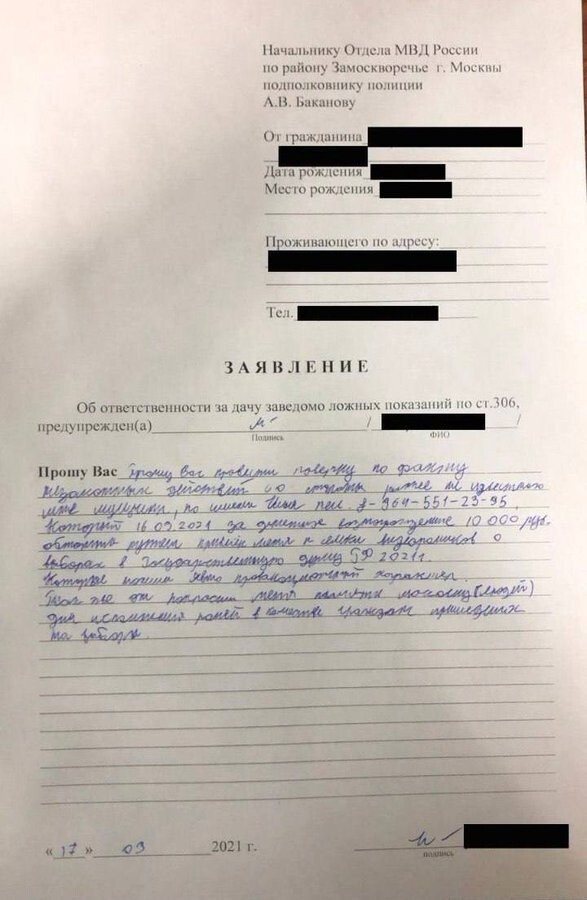 Начальнику Отдела МВД России
по району Замоскворечье г. Москвы
подполковнику полиции
А.В. Баканову
От гражданина
Дата рождения
Место рождения
Проживающего по адресу:
Тел.
ЗАЯВЛЕНИЕ
Об ответственности за дачу заведомо ложных показаний по ст.306,
предупрежден(а) / /
Подпись ФИО
Прошу Вас Прошу Вас провести поверку по факту
незаконных действий со стороны ранее не известного
мне мужчины, по имени Илья тел. 8-964-551-23-95,
Который 16.09.2021 за денежное вознаграждение 10 000 руб.
обманным путем привлёк меня к съемке видеороликов о
выборах в Государственную думу РФ 2021г.
Которые носили явно провокационный характер.
Так же он попросил меня
для исполнения ролей в качестве граждан пришедших
на выборы.
« 17 » 09 2021 г.
подпись